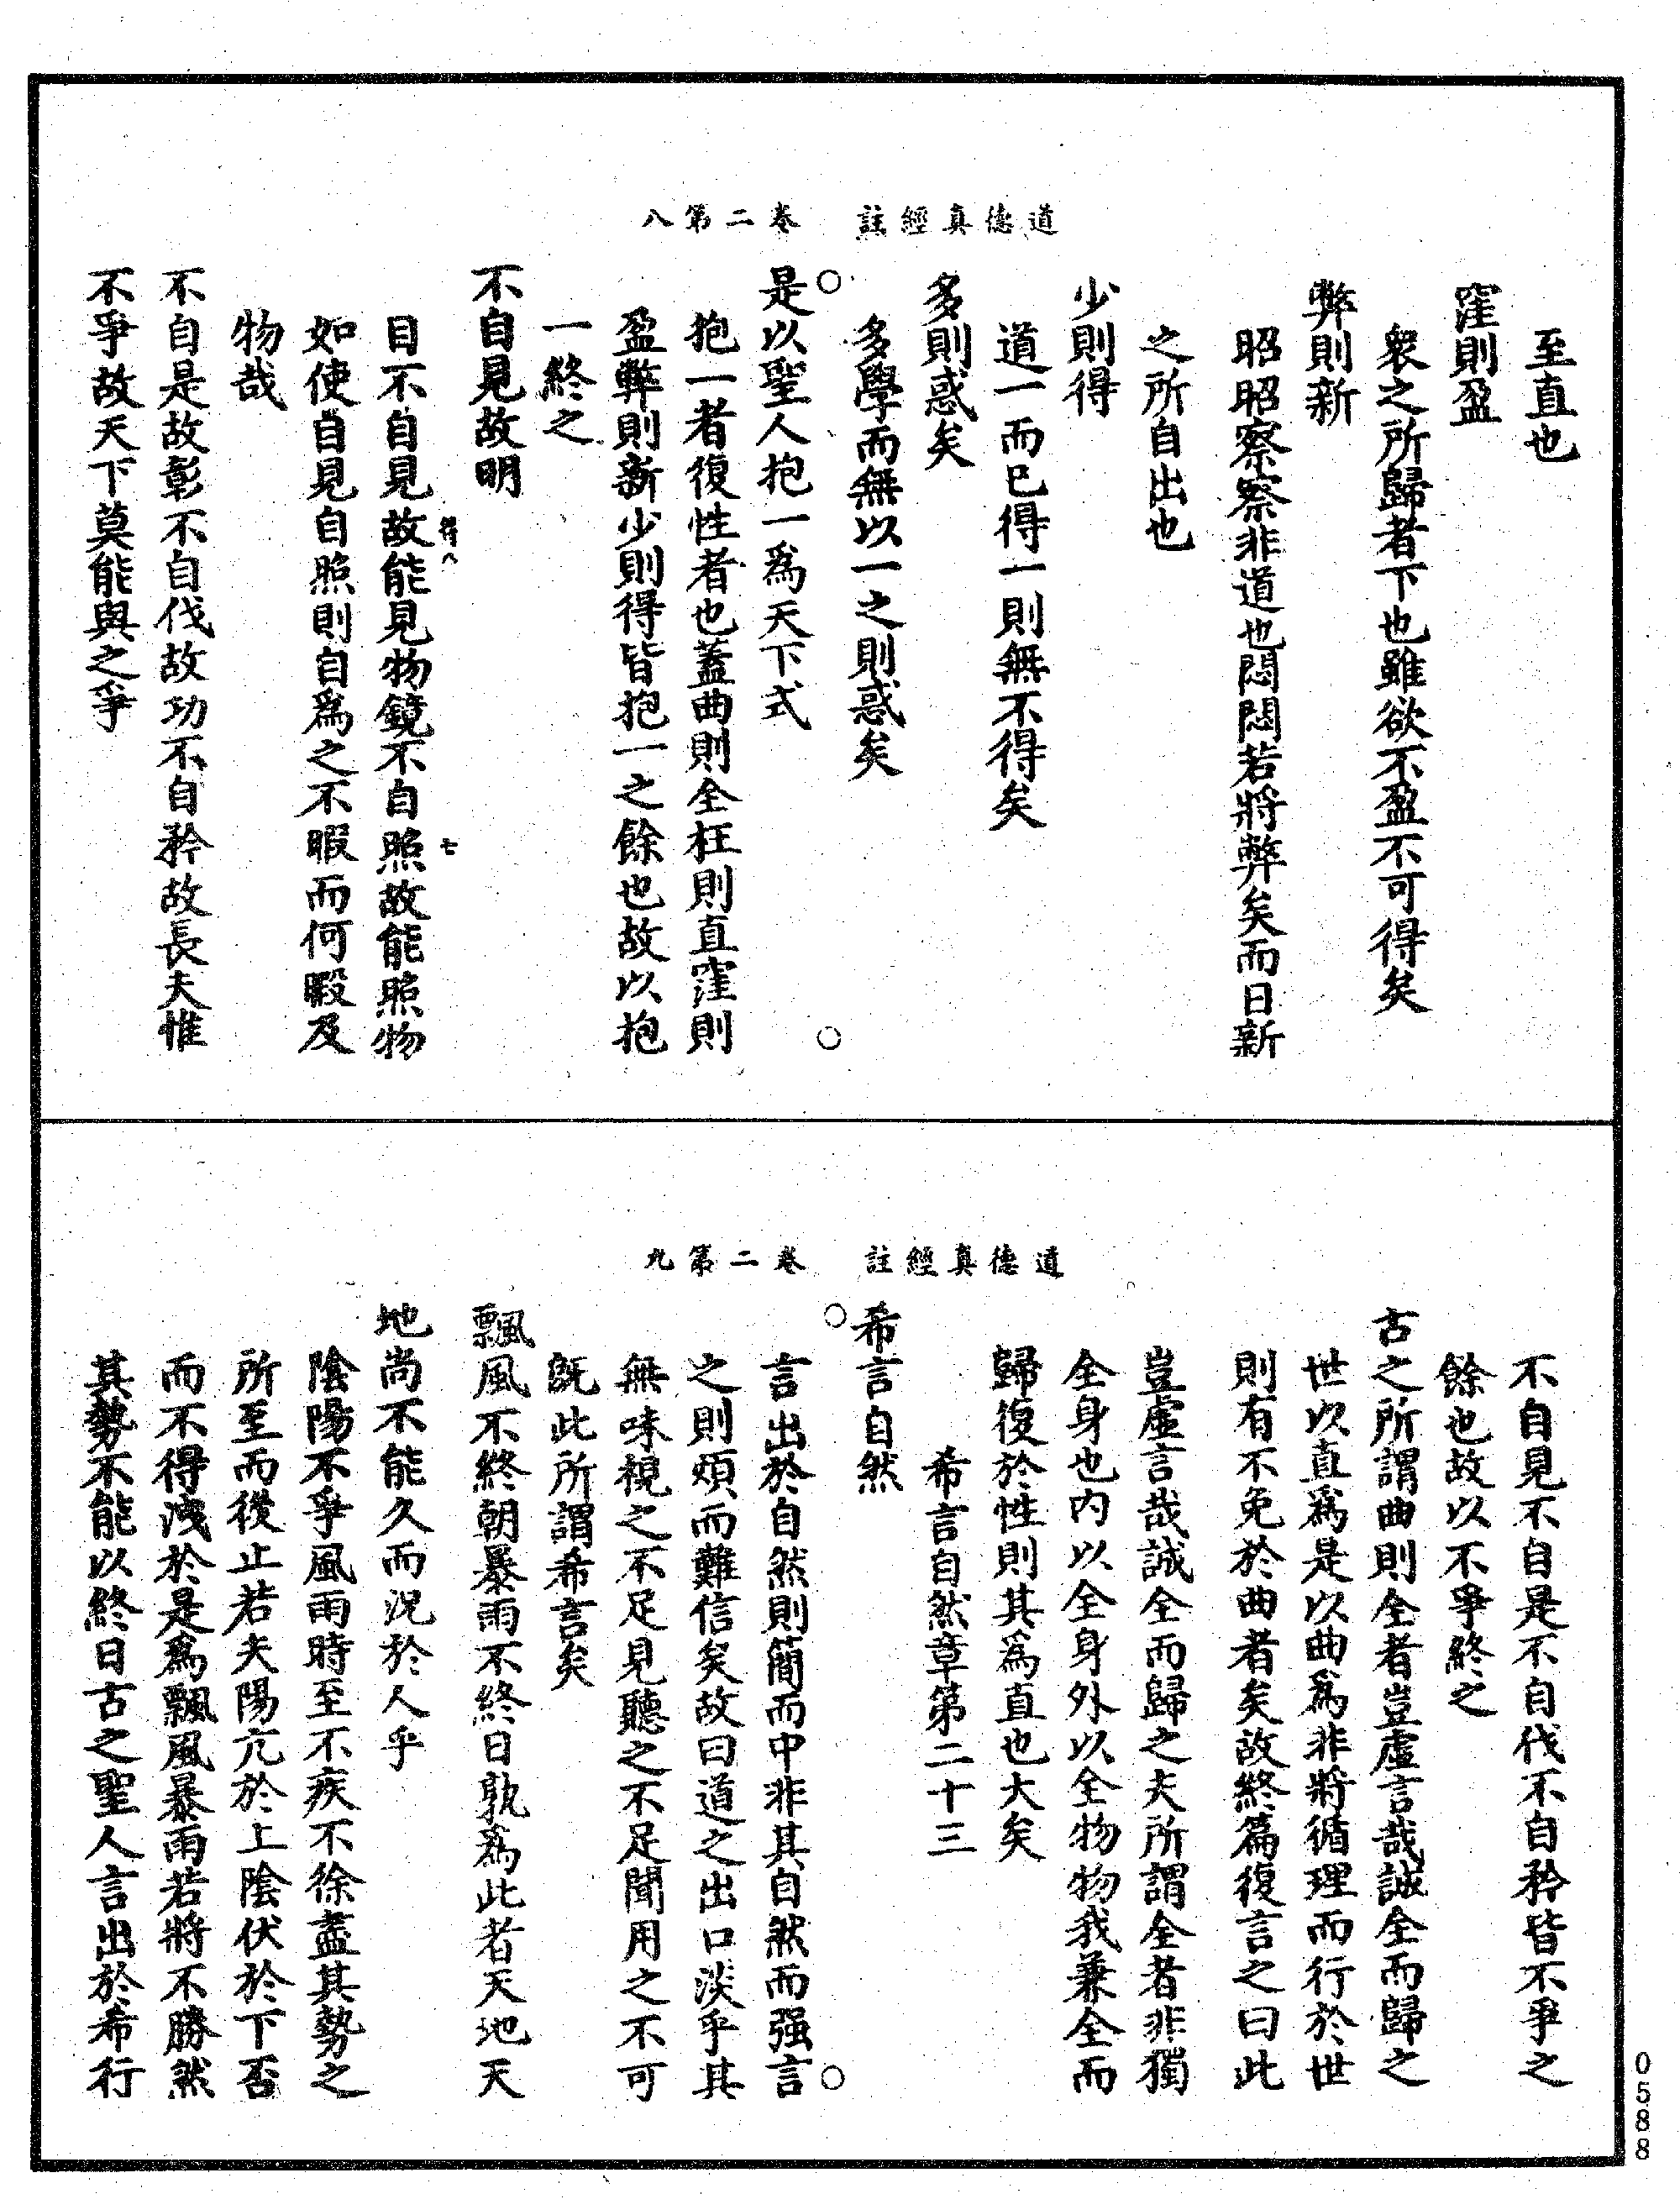 道德真經註　卷二第八
至直也
窪則盈
衆之所歸者下也雖欲不盈不可得矣
弊則新
昭昭察察非道也悶悶若將弊矣而日新
之所自出也
少則得
道一而已得一則無不得矣
多則惑矣
多學而無以一之則惑矣
是以聖人抱一爲天下式
抱一者復性者也蓋曲則全枉則直窪則
盈弊則新少則得皆抱一之餘也故以抱
一終之
不自見故明
符八　七
目不自見故能見物鏡不自照故能照物
如使自見自照則自爲之不暇而何暇及
物哉
不自是故彰不自伐故功不自矜故長夫惟
不爭故天下莫能與之爭
道德真經註　卷二第九
不自見不自是不自伐不自矜皆不爭之
餘也故以不爭終之
古之所謂曲則全者豈虛言哉誠全而歸之
世以直爲是以曲爲非將循理而行於世
則有不免於曲者矣故終篇復言之曰此
豈虛言哉誠全而歸之夫所謂全者非獨
全身也内以全身外以全物物我兼全而
歸復於性則其爲直也大矣
希言自然章第二十三
希言自然
言出於自然則簡而中非其自然而强言
之則煩而難信矣故曰道之出口淡乎其
無味視之不足見聽之不足聞用之不可
既此所謂希言矣
飄風不終朝暴雨不終日孰爲此者天地天
地尚不能久而況於人乎
陰陽不爭風雨時至不疾不徐盡其勢之
所至而後止若夫陽亢於上陰伏於下否
而不得洩於是爲飄風暴雨若將不勝然
其勢不能以終日古之聖人言出於希行
0588